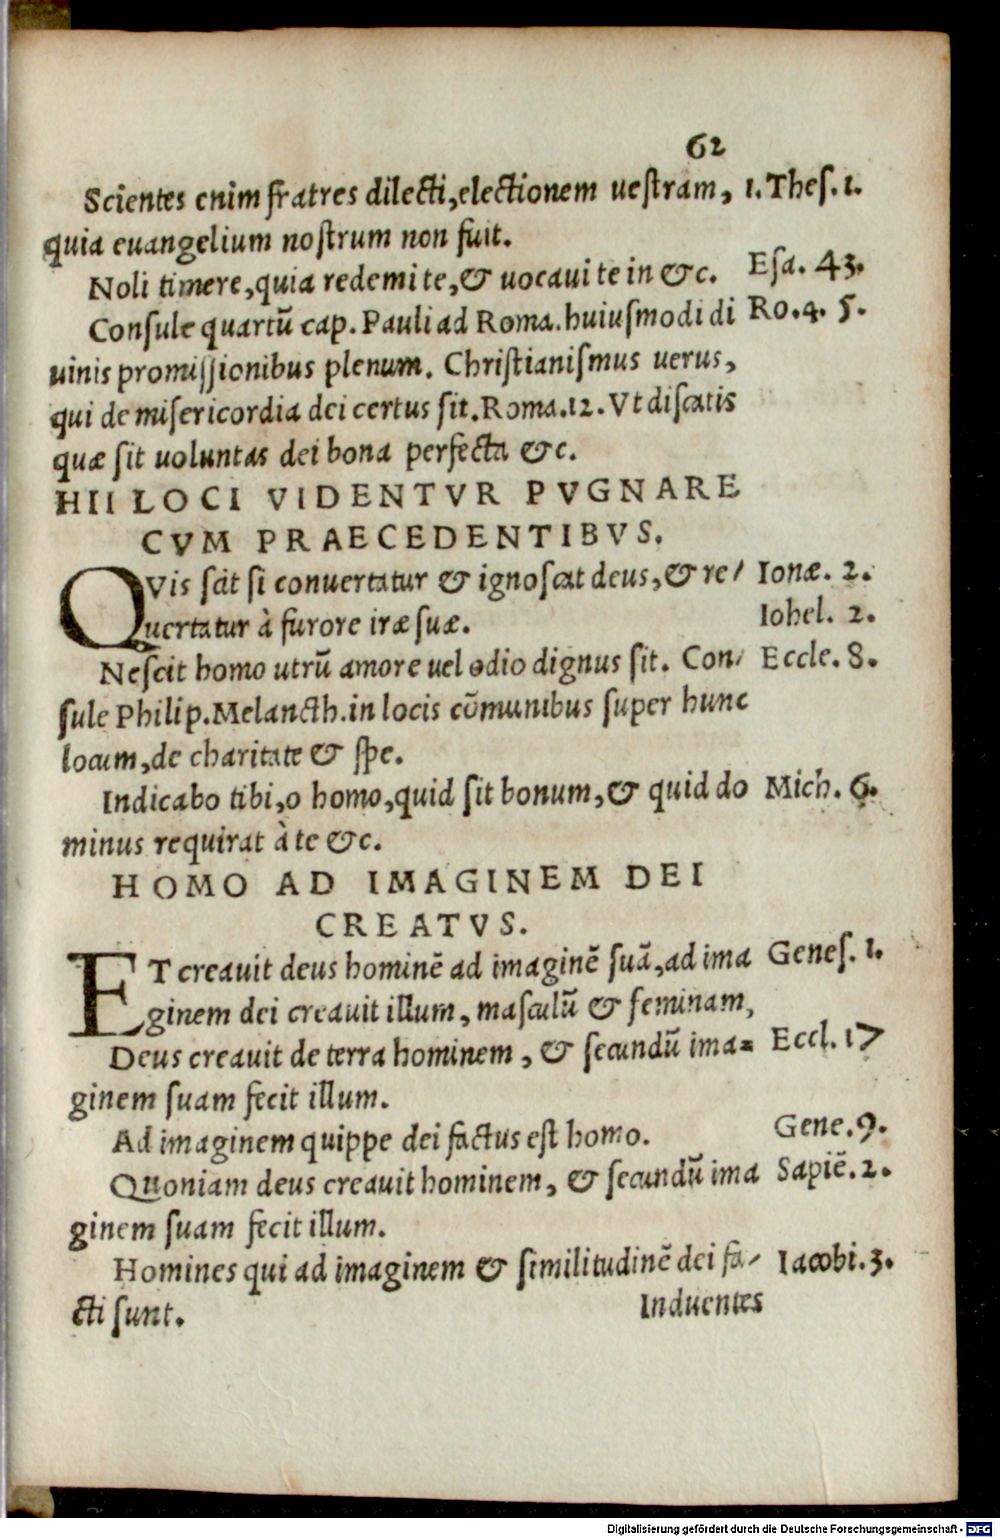 62
Scientes enim fratres dilecti, electionem uestram, 1. Thes. 1.
quia euangelium nostrum non fuit.
Noli timere, quia redemi te, & uocaui te in &c. Esa. 43.
Consule quartũ cap. Pauli ad Roma. huiusmodi di Ro. 4. 5.
uinis promissionibus plenum. Christianismus uerus,
qui de misericordia dei certus sit. Roma. 12. Vt discatis
quæ sit uoluntas dei bona perfecta &c.
HII LOCI VIDENTVR PVGNARE
CVM PRAECEDENTIBVS.
QVis scit si conuertatur & ignoscat deus, & re/ Ionæ. 2.
uertatur à furore iræ suæ. Iohel. 2.
Nescit homo utrũ amore uel odio dignus sit. Con/ Eccle. 8.
sule Philip. Melancth. in locis cõmunibus super hunc
locum, de charitate & spe.
Indicabo tibi, o homo, quid sit bonum, & quid do Mich. 6.
minus requirat à te &c.
HOMO AD IMAGINEM DEI
CREATVS.
ET creauit deus hominẽ ad imaginẽ suã, ad ima Genes. 1.
ginem dei creauit illum, masculũ & feminam,
Deus creauit de terra hominem, & secundũ ima= Eccl. 17
ginem suam fecit illum.
Ad imaginem quippe dei factus est homo. Gene. 9.
Quoniam deus creauit hominem, & secundũ ima Sapiẽ. 2.
ginem suam fecit illum.
Homines qui ad imaginem & similitudinẽ dei fa/ Iacobi. 3.
cti sunt. Induentes
Digitalisierung gefördert durch die Deutsche Forschungsgemeinschaft - DFG